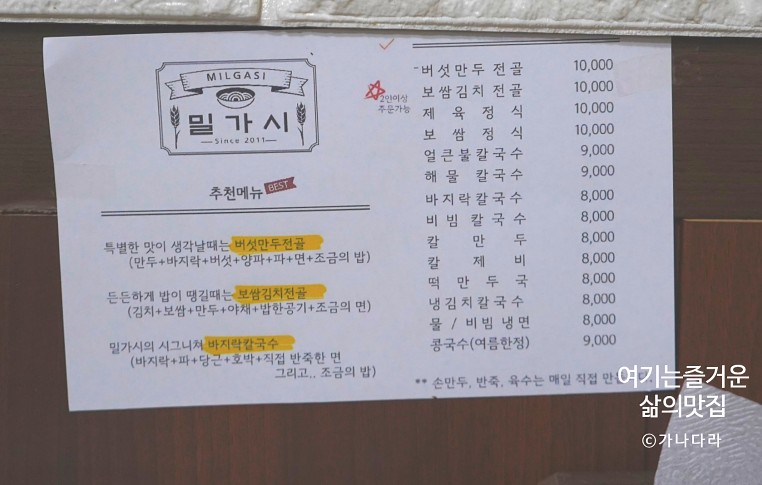 MILGASI
밀가시
Since 2011
추천메뉴 BEST
특별한 맛이 생각날때는 버섯만두전골
(만두+바지락+버섯+양파+파+면+조금의 밥)
든든하게 밥이 땡길때는 보쌈김치전골
(김치+보쌈+만두+야채+밥한공기+조금의 면)
밀가시의 시그니쳐 바지락칼국수
(바지락+파+당근+호박+직접 반죽한 면
그리고.. 조금의 밥)
2인이상
주문가능
버섯만두 전골 10,000
보쌈김치 전골 10,000
제육정식 10,000
보쌈정식 10,000
얼큰불칼국수 9,000
해물 칼국수 9,000
바지락칼국수 8,000
비빔칼국수 8,000
칼만두 8,000
칼제비 8,000
떡만두국 8,000
냉김치칼국수 8,000
물 / 비빔냉면 8,000
콩국수(여름한정) 9,000
** 손만두, 반죽, 육수는 매일 직접 만
여기는즐거운
삶의맛집
©가나다라